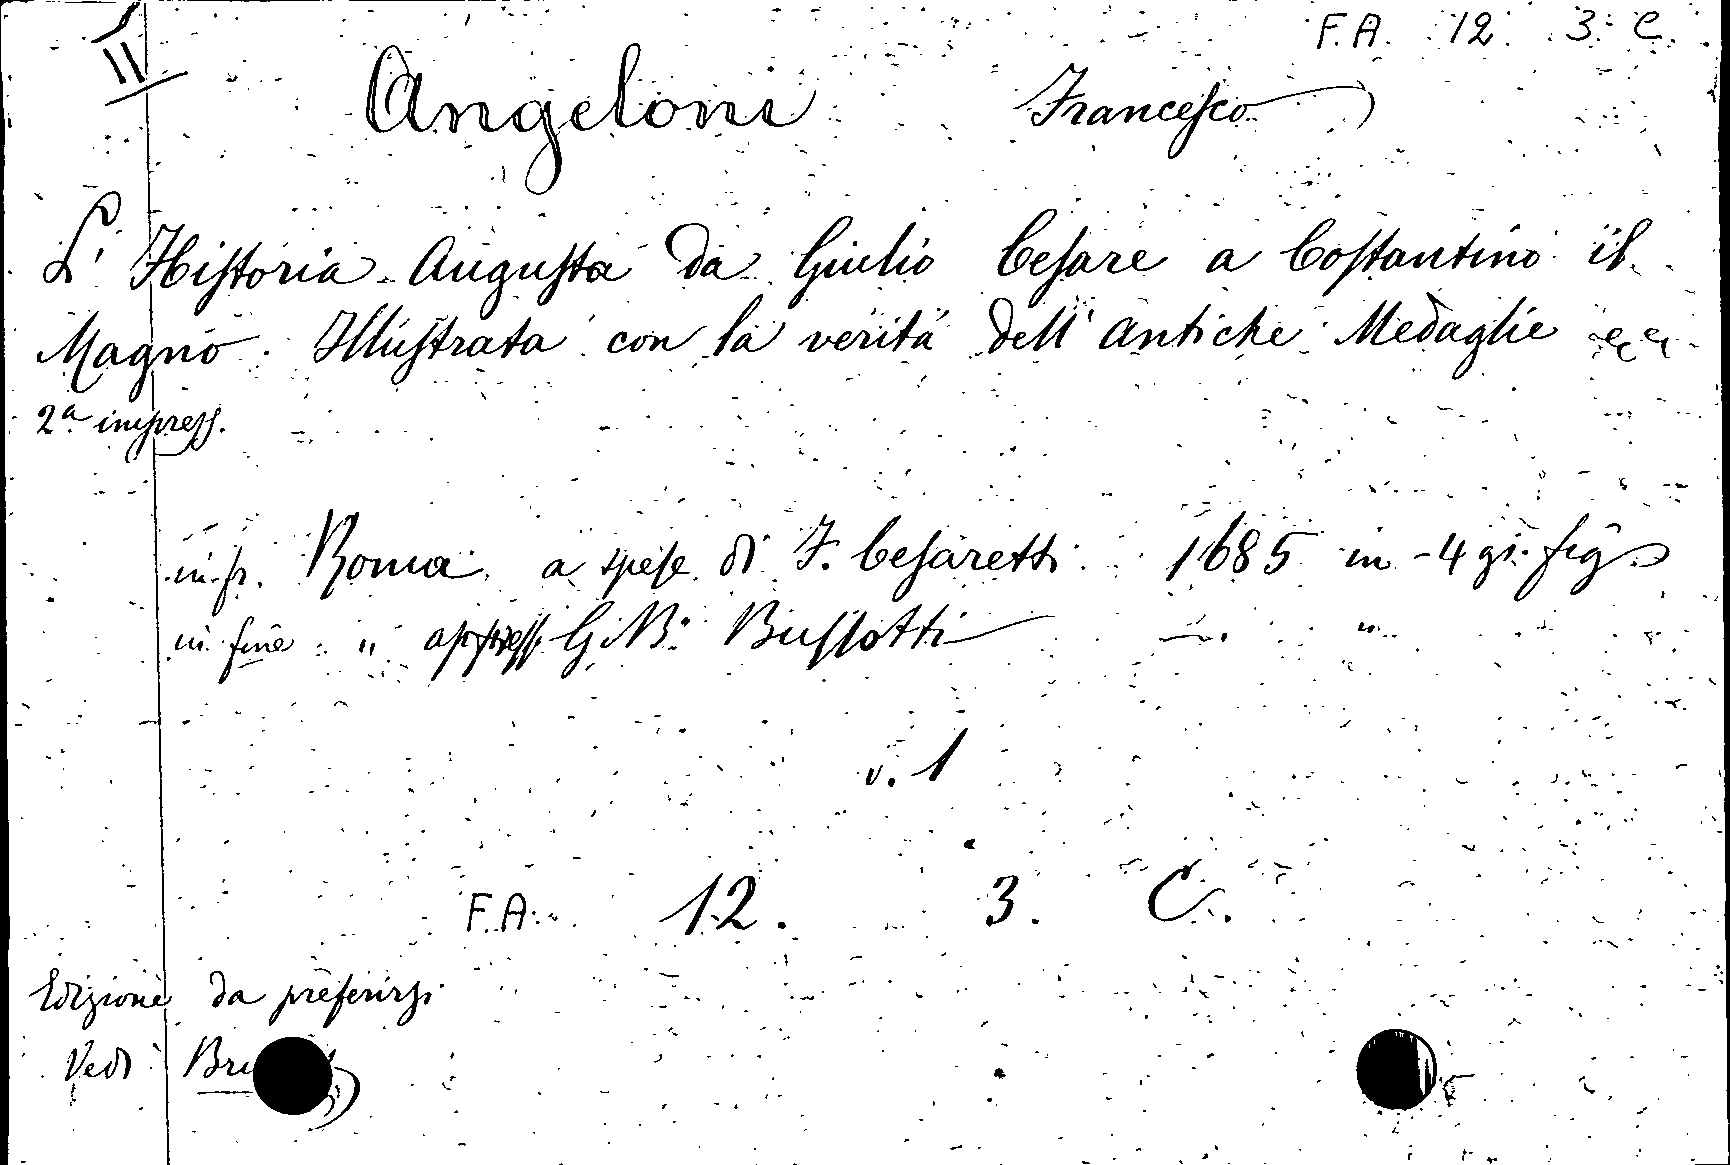 II F.A. 12 3 C
Angeloni Francesco
L' Historia Augusta da Giulio Cesare a Costantino il
Magno. Illustrata con la verità dell' antiche Medaglie
2ª impress.
in fr. Roma. a spese di F. Cesaretti 1685 in-4 gr. fig.
in fine " appress. G. Bª Bussotti — "
v. 1
F.A. 12. 3. C.
Edizione da preferirsi
Vedi